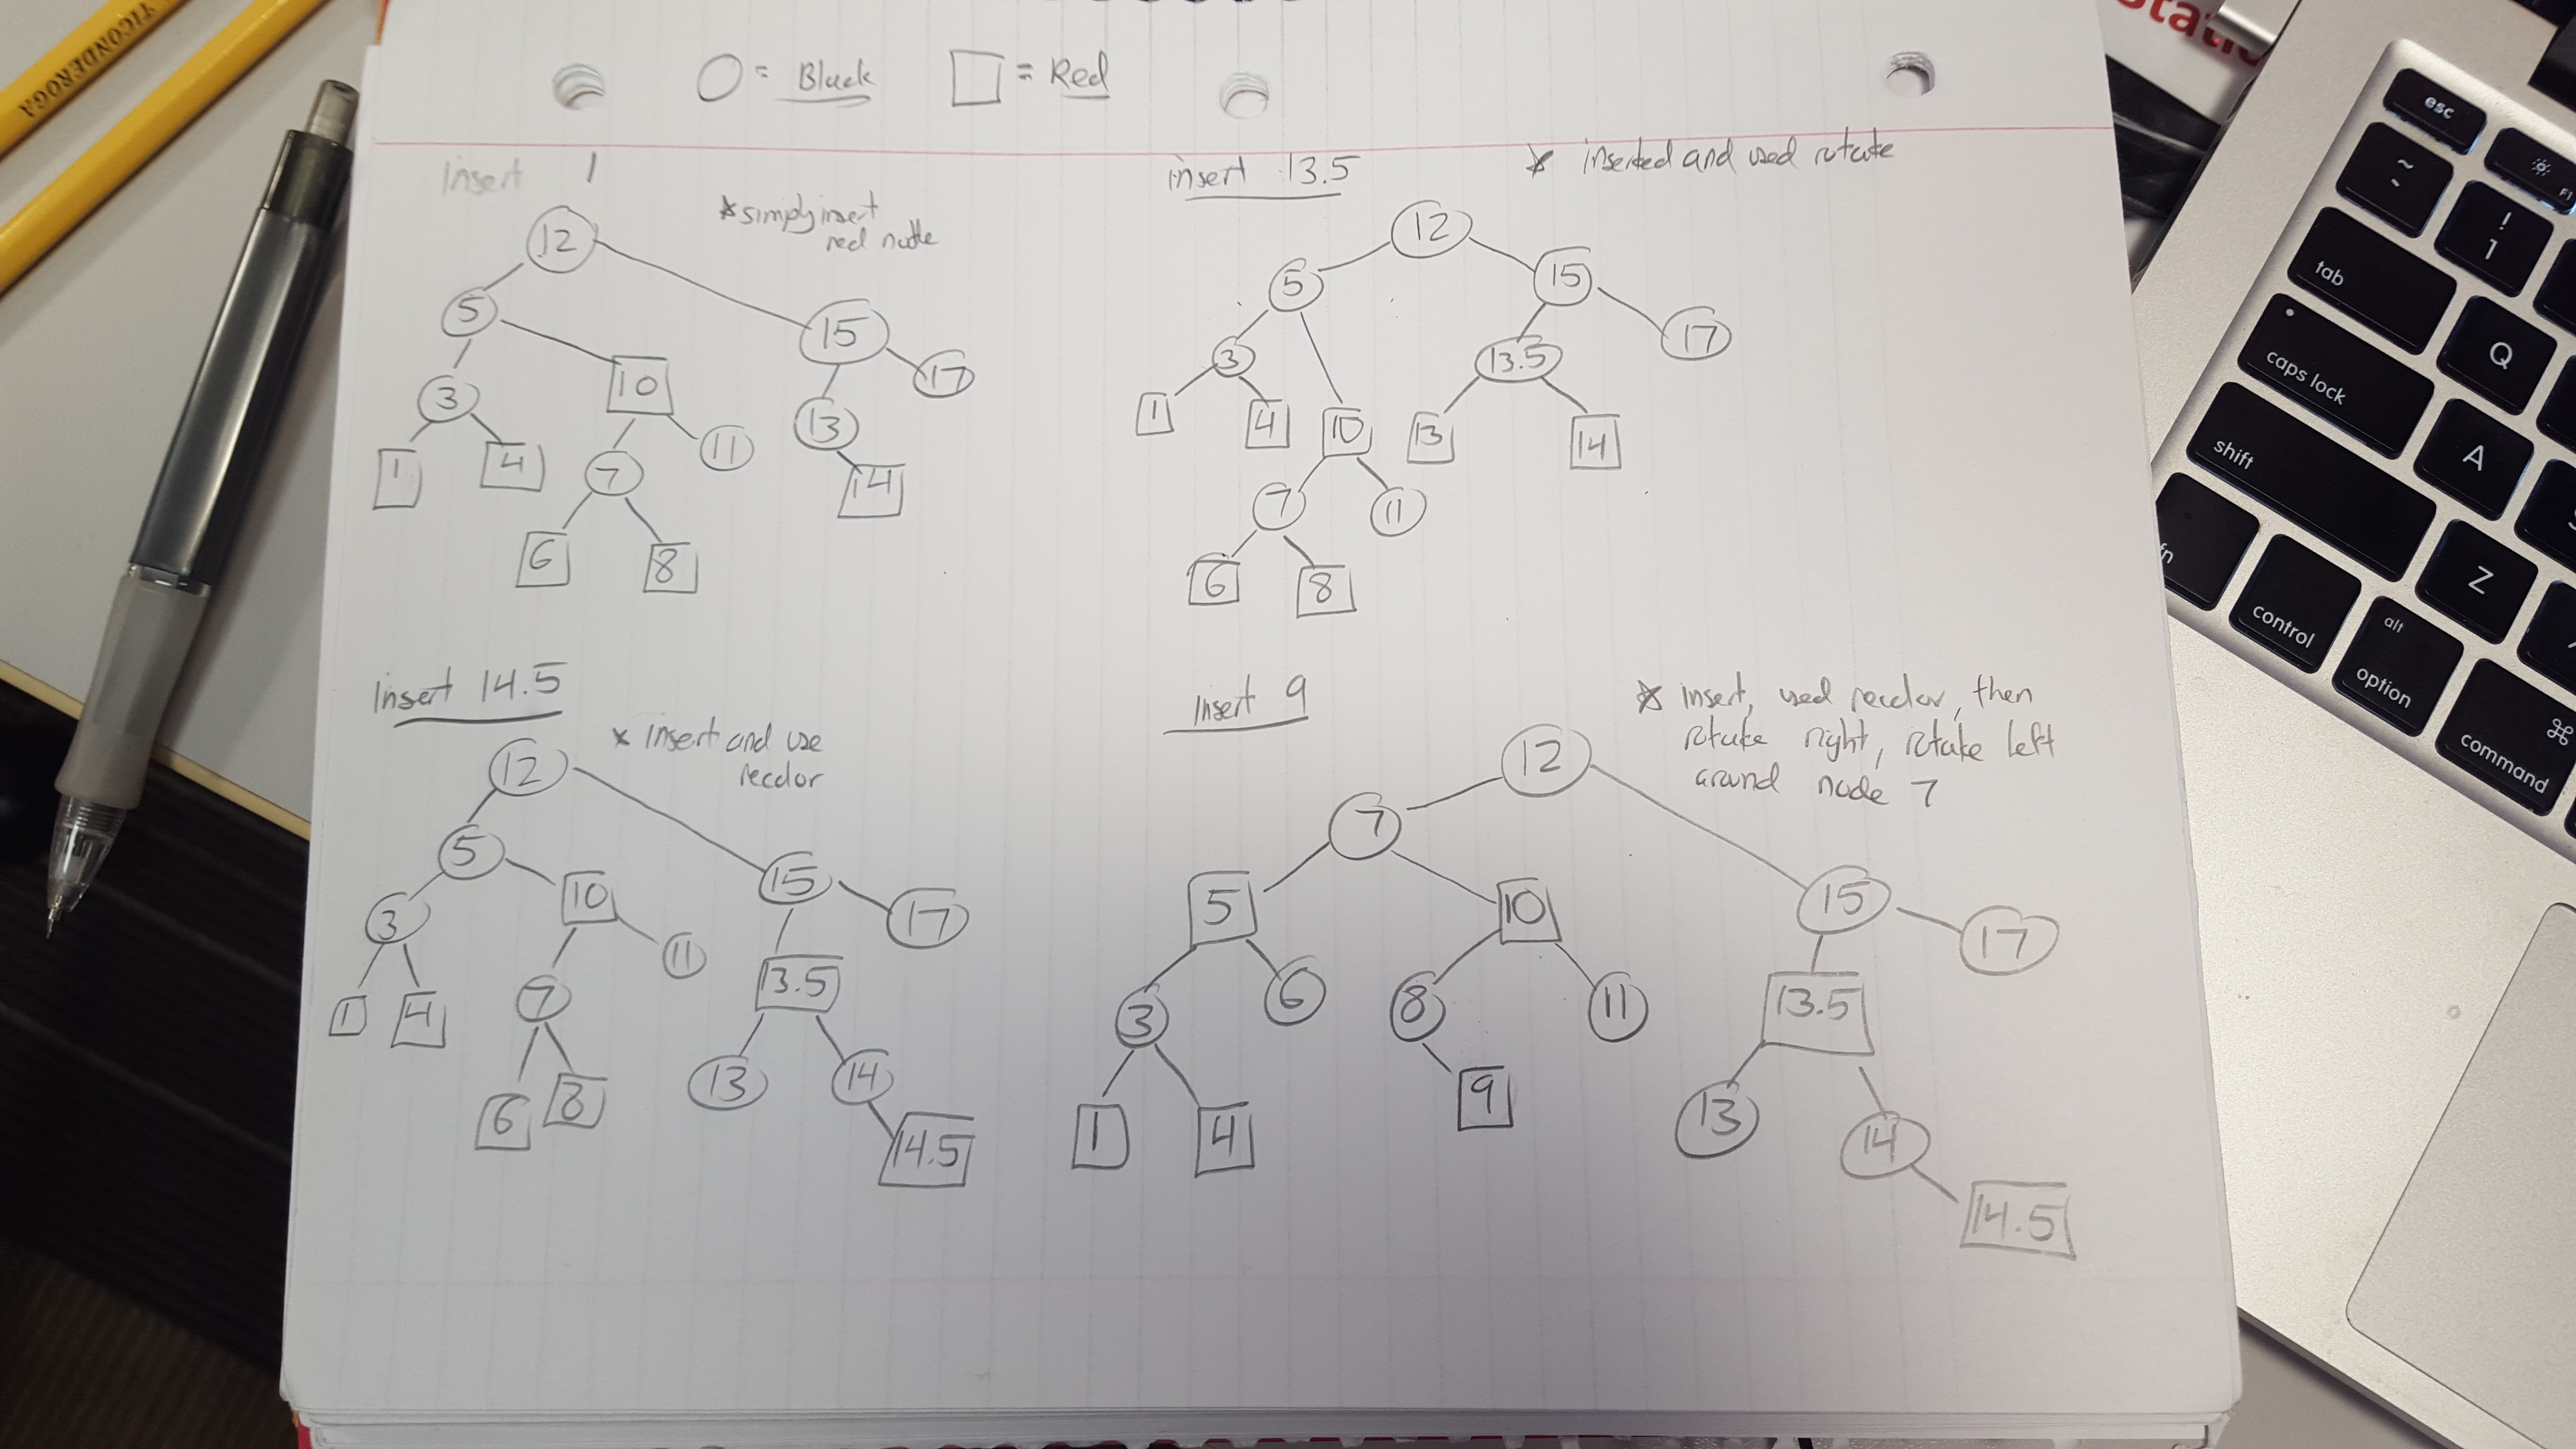 TICONDEROGA
= Black
= Red
Insert 1
* simply insert
red node
12
5
15
3
10
13
17
1
4
7
11
14
6
8
insert 13.5
* inserted and used rotate
12
5
15
3
13.5
17
1
4
10
13
14
7
11
6
8
Insert 14.5
* insert and use
recolor
12
5
15
3
10
13.5
17
1
4
7
11
13
14
6
8
14.5
Insert 9
* insert, used recolor, then
rotate right, rotate left
around node 7
12
7
15
5
10
13.5
17
3
6
8
11
13
14
1
4
9
14.5
esc
F1
~
!
1
tab
Q
caps lock
A
shift
Z
fn
control
alt
option
⌘
command